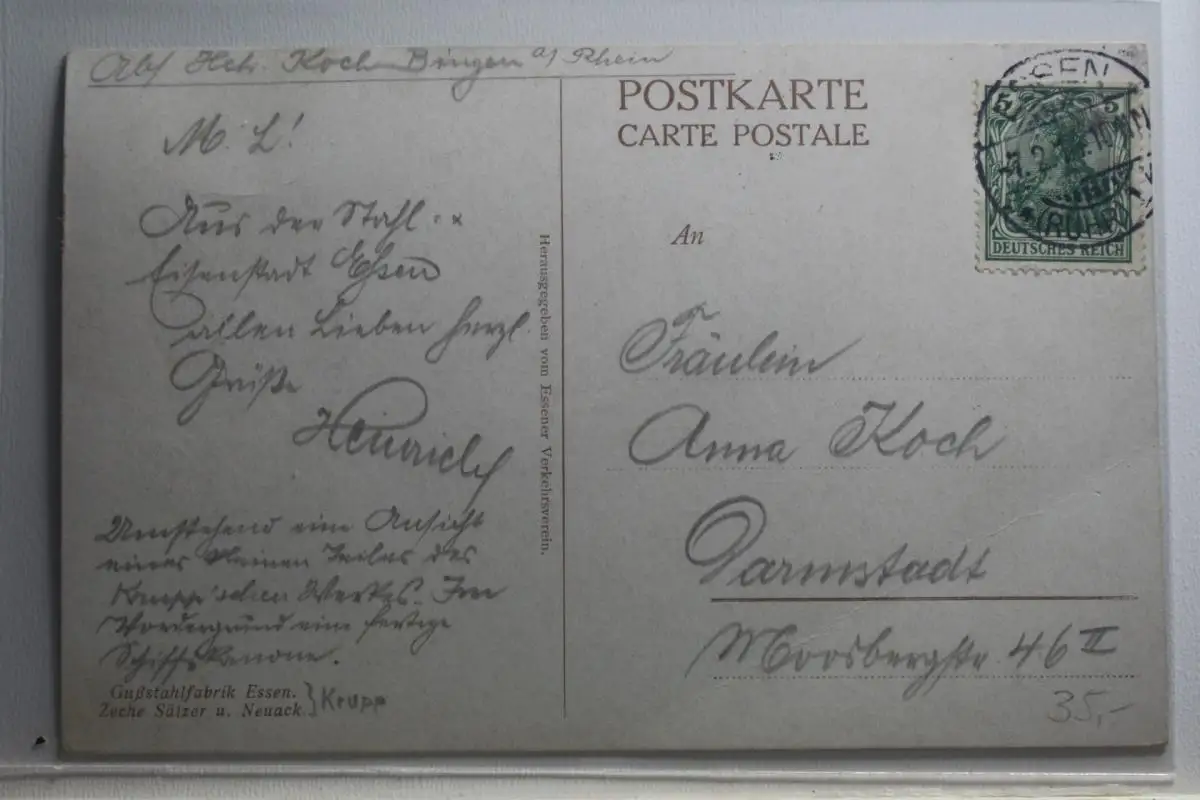 Abs. Hch. Koch Bingen a/ Rhein
M. L!
Aus der Stahl- &
Eisenstadt Essen
allen Lieben herzl.
Grüße
Heinrich
Umstehend eine Ansicht
eines kleinen Teiles des
Krupp'schen Werkes. Im
Vordergrund eine fertige
Schiffskanone.
Gußstahlfabrik Essen.
Zeche Sälzer u. Neuack.
}Krupp
Herausgegeben vom Essener Verkehrsverein.
POSTKARTE
CARTE POSTALE
ESSEN
(RUHR)
5 5
DEUTSCHES REICH
An
Fräulein
Anna Koch
Darmstadt
Moosbergstr. 46 II
35,-